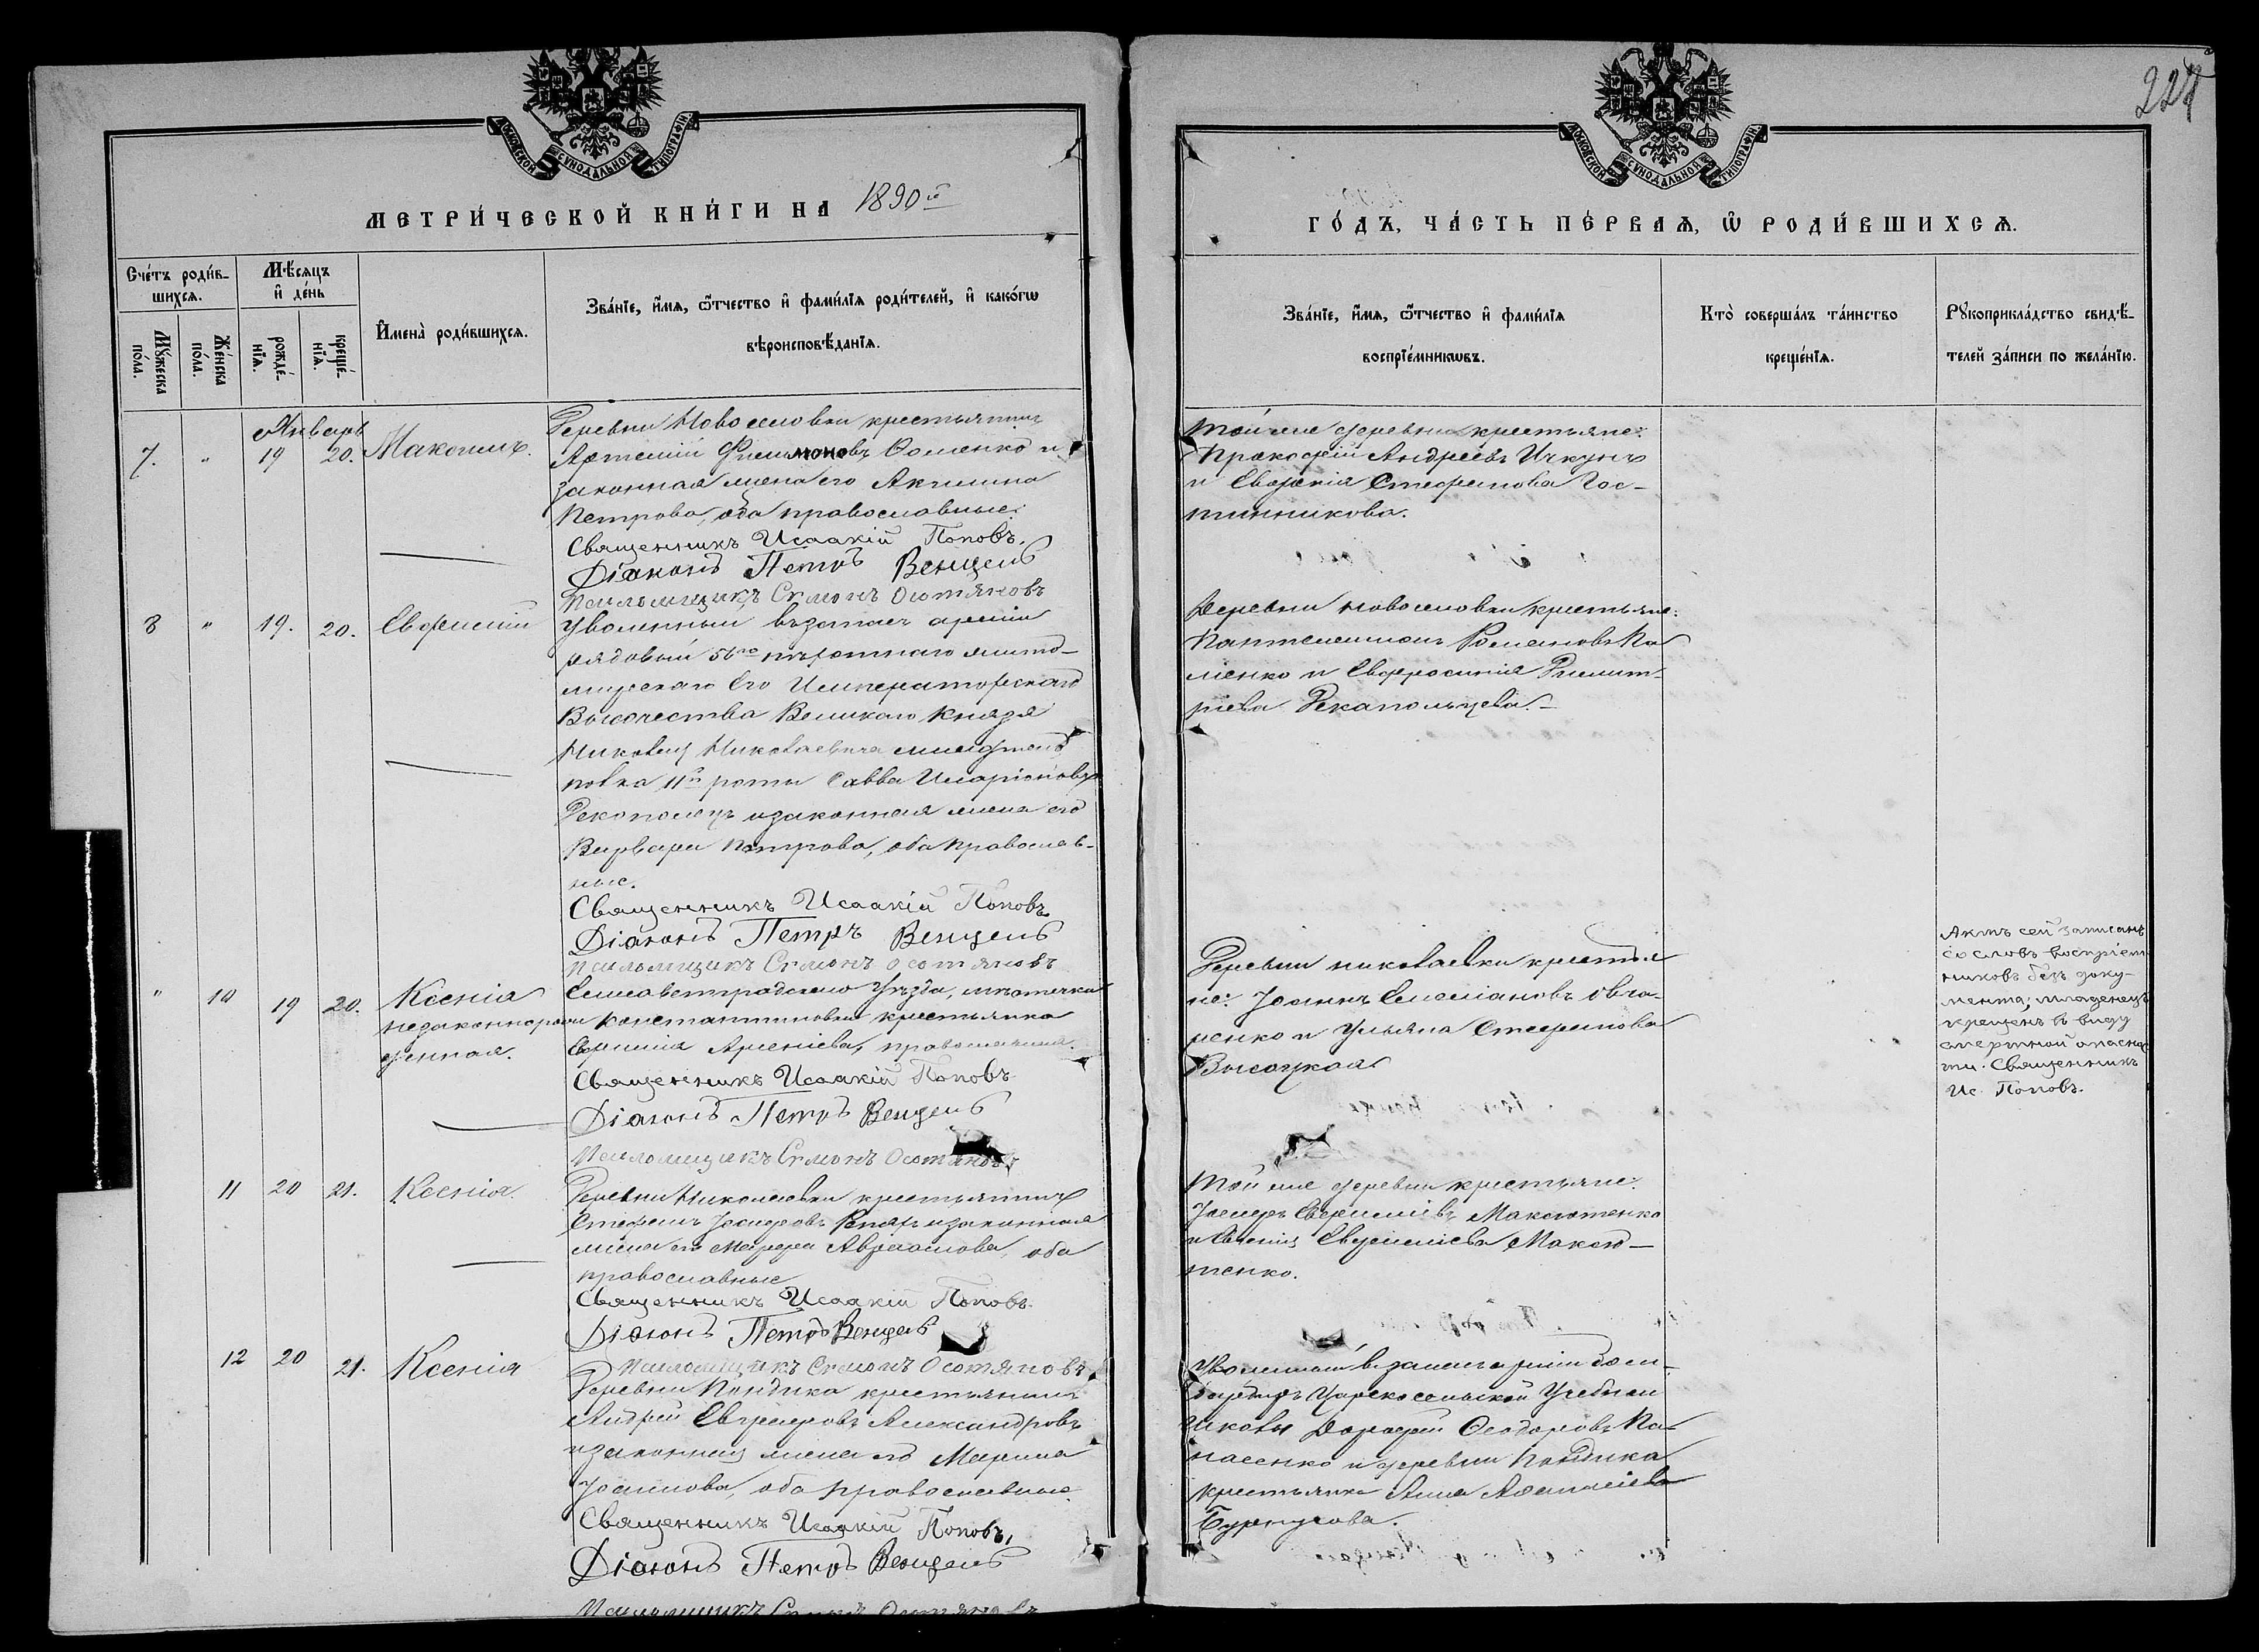 227
МОСКОВСКОЙ СѴНОДАЛЬНОЙ ТИПОГРАФІИ
МЕТРИ́ЧЕСКОЙ КНИ́ГИ НА 1890й
Сче́тъ роди́в-
шихсѧ.
Мѣ́сѧцъ
и҆ де́нь
Мꙋ́жеска
по́ла.
Же́нска
по́ла.
рожде́-
нїѧ.
креще́-
нїѧ.
И҆мена̀ роди́вшихсѧ.
Зва́нїе, и҆́мѧ, ѻ҆́тчество и҆ фами́лїѧ роди́телей, и҆ како́гѡ
вѣроисповѣ́данїѧ.
Январь
7. " 19 20. Максимъ.
Деревни Новоселовки крестьянинъ
Артемій Филимоновъ Фоменко и
законная жена его Акилина
Петрова, оба православные.
Священникъ Исаакій Поповъ.
Діаконъ Петръ Венцель
Псаломщикъ Сѵмонъ Осотяновъ
8 " 19. 20. Евфимій
Уволенный въ запасъ арміи
рядовый 56го пѣхотнаго жито-
мирскаго Его Императорскаго
Высочества Великаго Князя
Николая Николаевича
полка 11й роты Савва Иларіоновъ
и законная жена его
Варвара Петрова, оба православ-
ные.
Священникъ Исаакій Поповъ
Діаконъ Петръ Венцель
Псаломщикъ Сѵмонъ Осотяновъ
" 10 19 20. Ксенія
незаконнорож-
денная.
Елисаветградскаго Уѣзда, мѣстечка
Константиновки крестьянка
Арсеніева, православная.
Священникъ Исаакій Поповъ
Діаконъ Петръ Венцель
Псаломщикъ Сѵмонъ Осотяновъ
11 20 21. Ксенія.
Деревни Николаевки крестьянинъ
Стефанъ Іосифовъ и законная
жена его Марфа Авраамова, оба
православные
Священникъ Исаакій Поповъ.
Діаконъ Петръ Венцель
Псаломщикъ Сѵмонъ Осотяновъ
12 20 21. Ксенія
Деревни Пандика крестьянинъ
Андрей Евграфовъ Александровъ
и законная жена его Марина
Іоаннова, оба православные.
Священникъ Исаакій Поповъ,
Діаконъ Петръ Венцель
Псаломщикъ Сѵмонъ Осотяновъ
МОСКОВСКОЙ СѴНОДАЛЬНОЙ ТИПОГРАФІИ
ГО́ДЪ, ЧА́СТЬ ПЕ́РВАѦ, Ѡ҆ РОДИ́ВШИХСѦ.
Зва́нїе, и҆́мѧ, ѻ҆́тчество и҆ фами́лїѧ
воспрїе́мникѡвъ.
Кто̀ соверша́лъ та́инство
креще́нїѧ.
Рꙋкоприкла́дство свидѣ́-
телей за́писи по жела́нїю.
Той же деревни крестьяне:
Прокофій Андреевъ Ичкунъ
и Евдокія Стефанова Гос-
тинникова.
Деревни Новоселовки крестьяне:
Пантелеимонъ Романовъ Па-
менко и Евфросинія Димит-
ріева
Деревни Николаевки крестья-
не: Іоаннъ Емеліановъ Овча-
ренко и Ульяна Стефанова
Высоцкая
Актъ сей записанъ
со словъ воспріем-
никовъ безъ доку-
мента; младенецъ
крещенъ в виду
смертной опаснос-
ти. Священникъ
Ис. Поповъ.
Той же деревни крестьяне:
Іосифъ Евфиміевъ Максютенко
и Евфиміева Максю-
тенко.
Уволенный въ запасъ арміи бом-
бардиръ Царскосельской Учебной
Дорофей Ѳеодоровъ Па-
насенко и деревни Пандика
крестьянка Анна Аѳанасіева